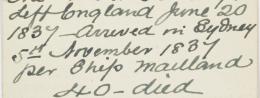 Left England June 20
1837 - Arrived in Sydney
5th November 1837
per Ship Maitland
40 - died